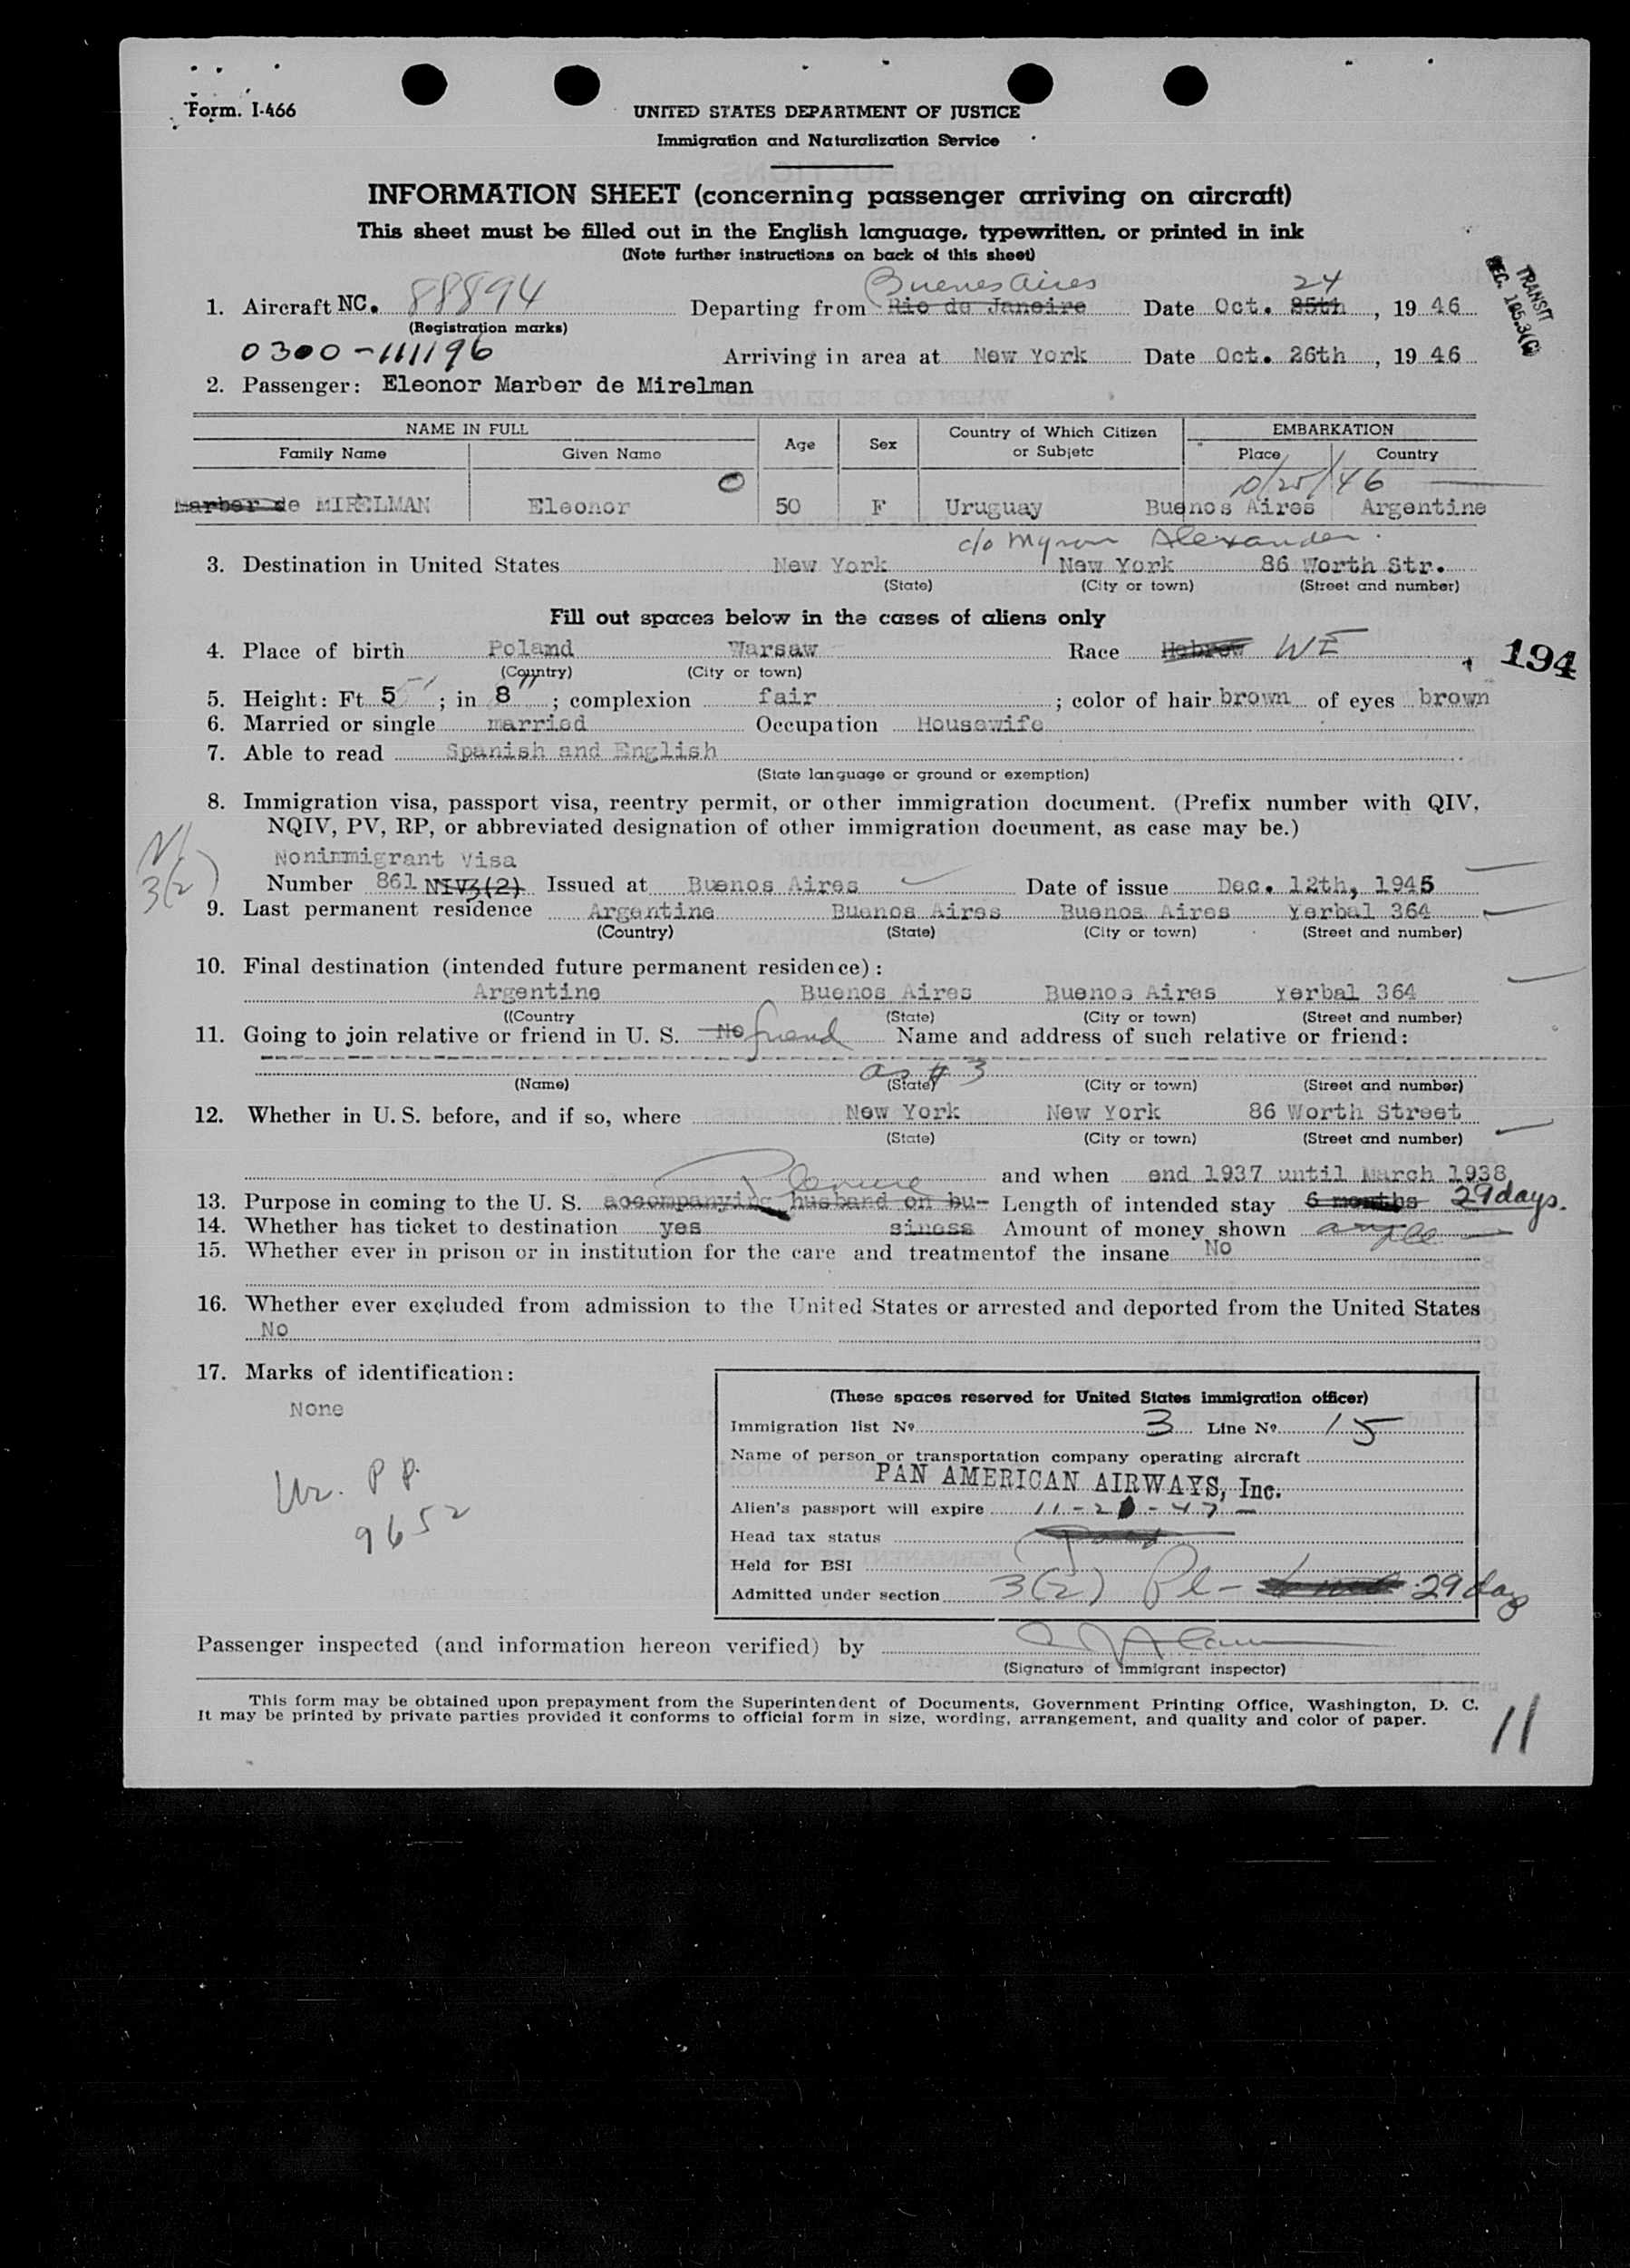 Form. I-466
UNITED STATES DEPARTMENT OF JUSTICE
Immigration and Naturalization Service
INFORMATION SHEET (concerning passenger arriving on aircraft)
This sheet must be filled out in the English language, typewritten, or printed in ink
(Note further instructions on back of this sheet)
TRANSIT
SEC. 195.3(C)
Buenos Aires 24
1. Aircraft NC. 88894 Departing from Rio de Janeiro Date Oct. 25th, 19 46
(Registration marks)
0300-111196 Arriving in area at New York Date Oct. 26th, 19 46
2. Passenger: Eleonor Marber de Mirelman
NAME IN FULL Age Sex Country of Which Citizen or Subjetc EMBARKATION
Family Name Given Name Place Country
10/25/46
Marber de MIRELMAN Eleonor 50 F Uruguay Buenos Aires Argentine
c/o Myron Alexander.
3. Destination in United States New York New York 86 Worth Str.
(State) (City or town) (Street and number)
Fill out spaces below in the cases of aliens only
4. Place of birth Poland Warsaw Race Hebrew WE
194
(Country) (City or town)
5. Height: Ft 5 ; in 8 ; complexion fair ; color of hair brown of eyes brown
6. Married or single married Occupation Housewife
7. Able to read Spanish and English
(State language or ground or exemption)
8. Immigration visa, passport visa, reentry permit, or other immigration document. (Prefix number with QIV,
NQIV, PV, RP, or abbreviated designation of other immigration document, as case may be.)
Nonimmigrant Visa
3(2)
Number 861 NIV3(2) Issued at Buenos Aires Date of issue Dec. 12th, 1945
9. Last permanent residence Argentine Buenos Aires Buenos Aires Yerbal 364
(Country) (State) (City or town) (Street and number)
10. Final destination (intended future permanent residence):
Argentine Buenos Aires Buenos Aires Yerbal 364
((Country (State) (City or town) (Street and number)
11. Going to join relative or friend in U. S. No friend Name and address of such relative or friend:
as # 3
(Name) (State) (City or town) (Street and number)
12. Whether in U. S. before, and if so, where New York New York 86 Worth Street
(State) (City or town) (Street and number)
and when end 1937 until March 1938
Pleasure
13. Purpose in coming to the U. S. accompanying husband on bu- Length of intended stay 6 months 29 days.
14. Whether has ticket to destination yes siness Amount of money shown ample
15. Whether ever in prison or in institution for the care and treatmentof the insane No
16. Whether ever excluded from admission to the United States or arrested and deported from the United States
No
17. Marks of identification:
None
Ur. P.P.
9652
(These spaces reserved for United States immigration officer)
Immigration list Nº 3 Line Nº 15
Name of person or transportation company operating aircraft
PAN AMERICAN AIRWAYS, Inc.
Alien's passport will expire 11-20-47
Head tax status
Held for BSI
Admitted under section 3(2) Pl- 29 days
Passenger inspected (and information hereon verified) by
(Signature of immigrant inspector)
This form may be obtained upon prepayment from the Superintendent of Documents, Government Printing Office, Washington, D. C.
It may be printed by private parties provided it conforms to official form in size, wording, arrangement, and quality and color of paper.
11